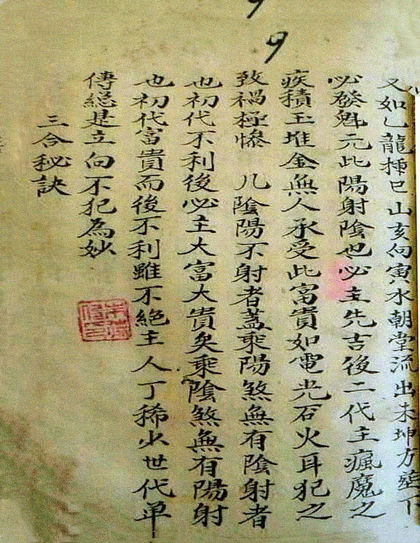 又如乙龍揷巳山亥向寅水朝堂流出未坤方塟下
必發魁元此陽射陰也必主先吉後二代主瘋魔之
疾積玉堆金無人承受此富貴如電光石火耳犯之
致禍極慘 凡陰陽不射者蓋乘陽煞無有陰射者
也初代不利後必主大富大貴矣乘陰煞無有陽射
也初代富貴而後不利雖不絕主人丁稀少世代单
傳緫是立向不犯為妙
三合秘訣
9